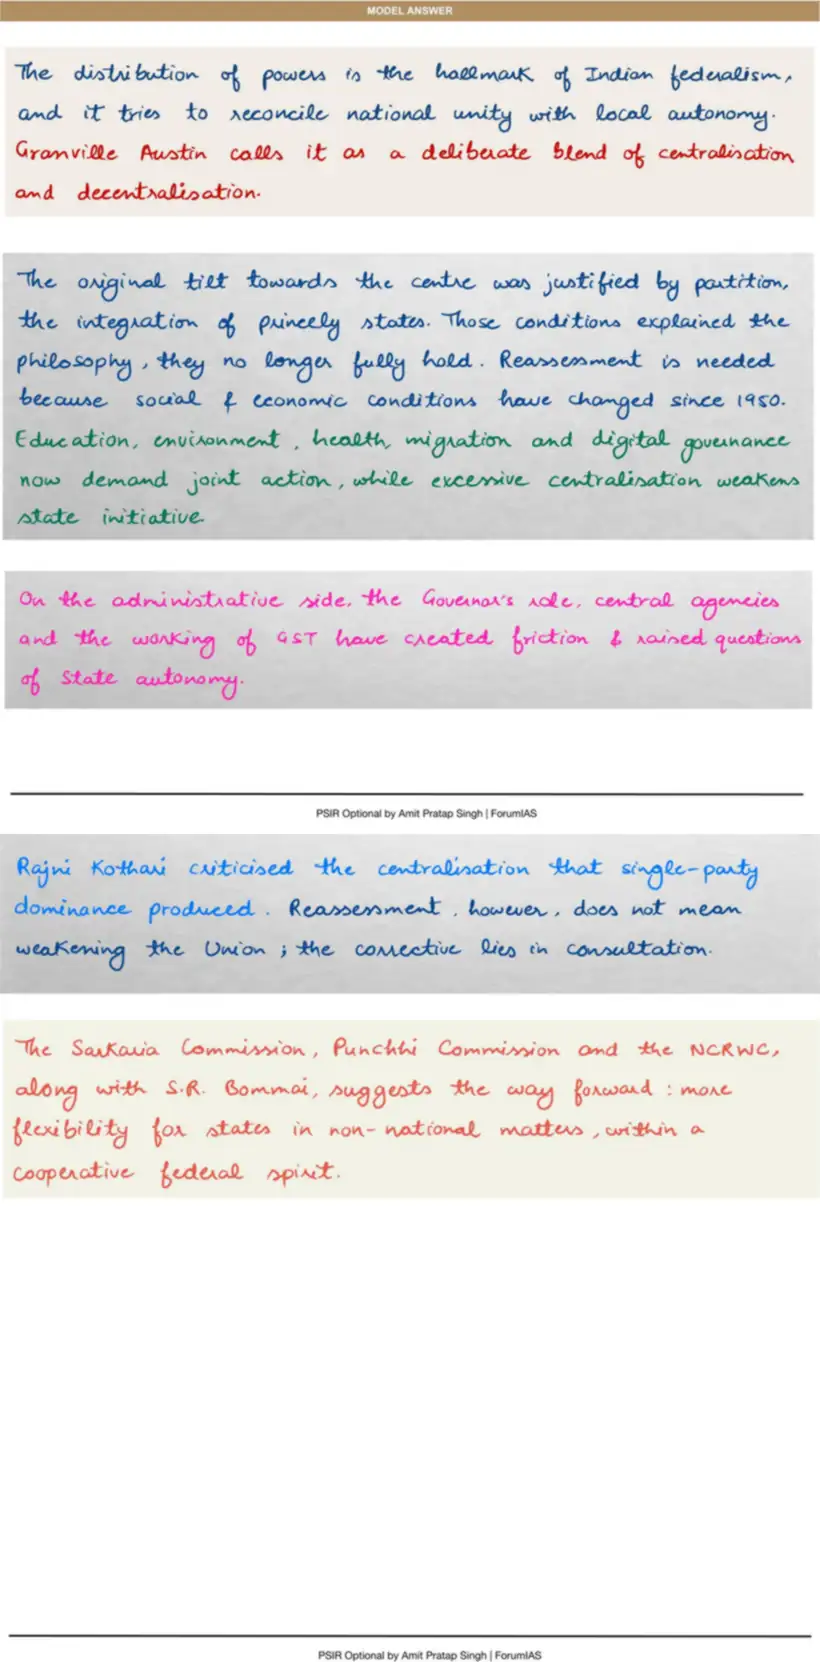 MODEL ANSWER
The distribution of powers is the hallmark of Indian federalism,
and it tries to reconcile national unity with local autonomy.
Granville Austin calls it as a deliberate blend of centralisation
and decentralisation.
The original tilt towards the centre was justified by partition,
the integration of princely states. Those conditions explained the
philosophy, they no longer fully hold. Reassessment is needed
because social & economic conditions have changed since 1950.
Education, environment, health, migration and digital governance
now demand joint action, while excessive centralisation weakens
state initiative.
On the administrative side, the Governor's role, central agencies
and the working of GST have created friction & raised questions
of State autonomy.
PSIR Optional by Amit Pratap Singh | ForumIAS
Rajni Kothari criticised the centralisation that single-party
dominance produced. Reassessment, however, does not mean
weakening the Union; the corrective lies in consultation.
The Sarkaria Commission, Punchhi Commission and the NCRWC,
along with S.R. Bommai, suggests the way forward: more
flexibility for states in non-national matters, within a
cooperative federal spirit.
PSIR Optional by Amit Pratap Singh | ForumIAS